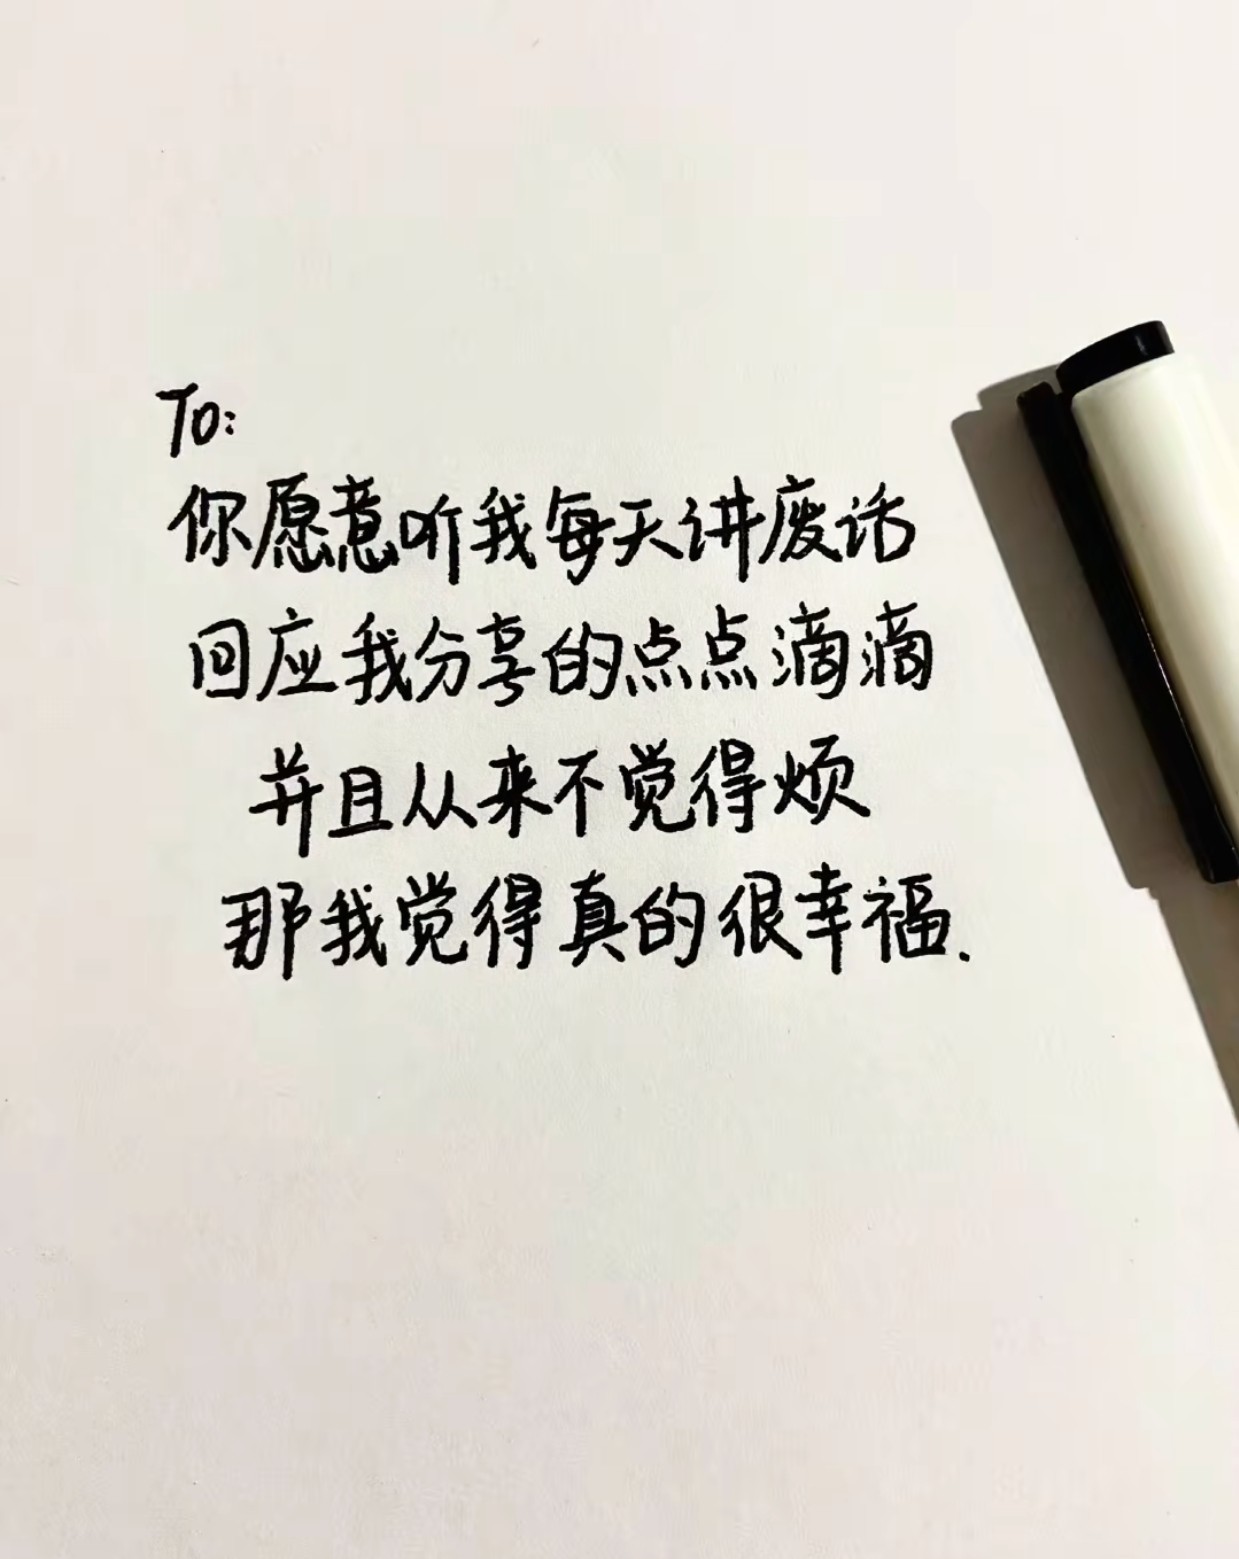 To:
你愿意听我每天讲废话
回应我分享的点点滴滴
并且从来不觉得烦
那我觉得真的很幸福.